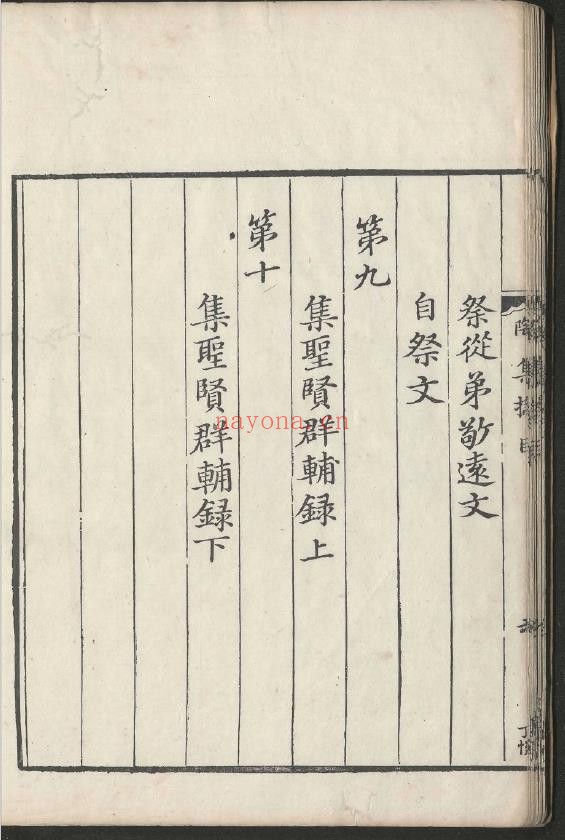 祭從弟敬遠文
自祭文
第九
集聖賢群輔録上
第十
集聖賢群輔録下
nayona.cn